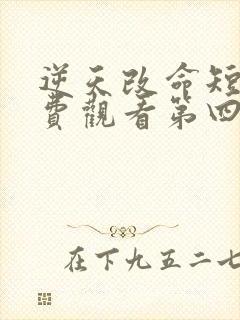 逆天改命短
費觀看第四
在下九五二七